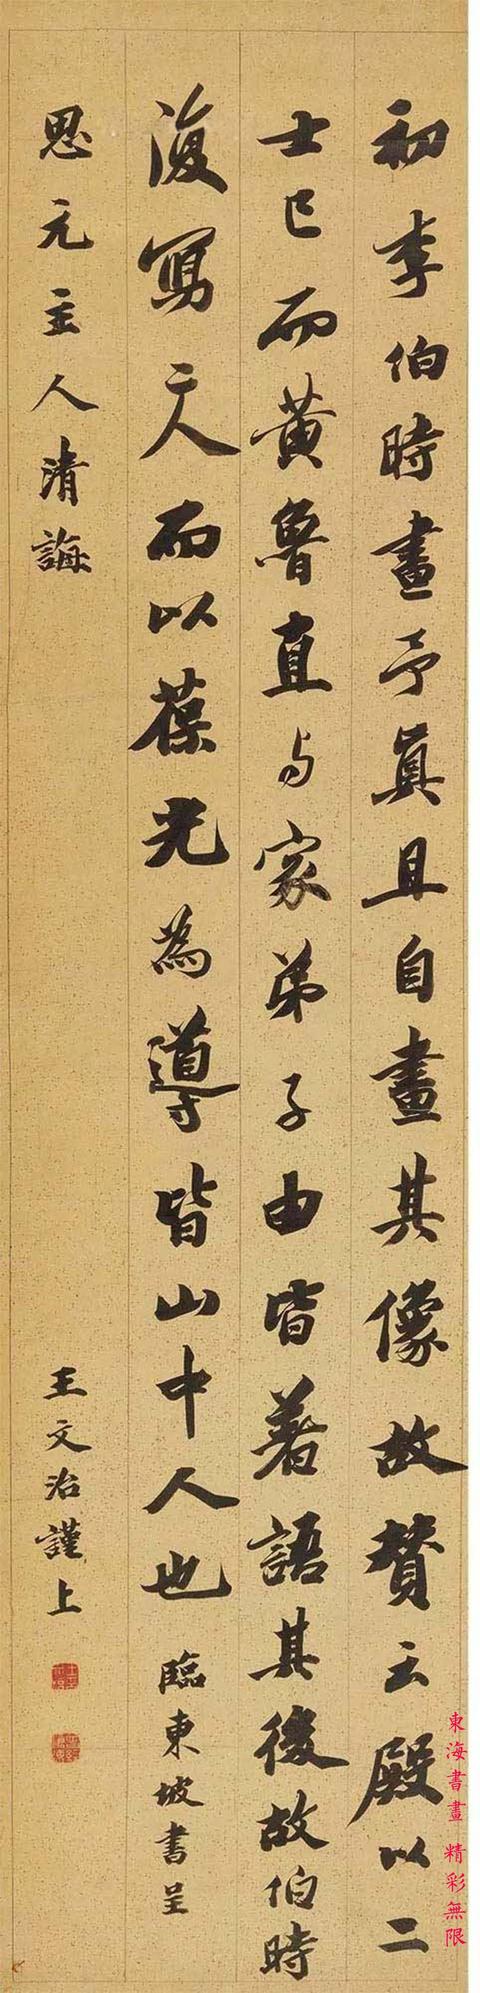 初李伯時畫予真且自畫其像故贊云殿以二
士已而黄魯直与家弟子由皆著語其後故伯時
復寫二人而以葆光為導皆山中人也臨東坡書呈
思元主人清誨
王文治謹上
東海書畫 精彩無限